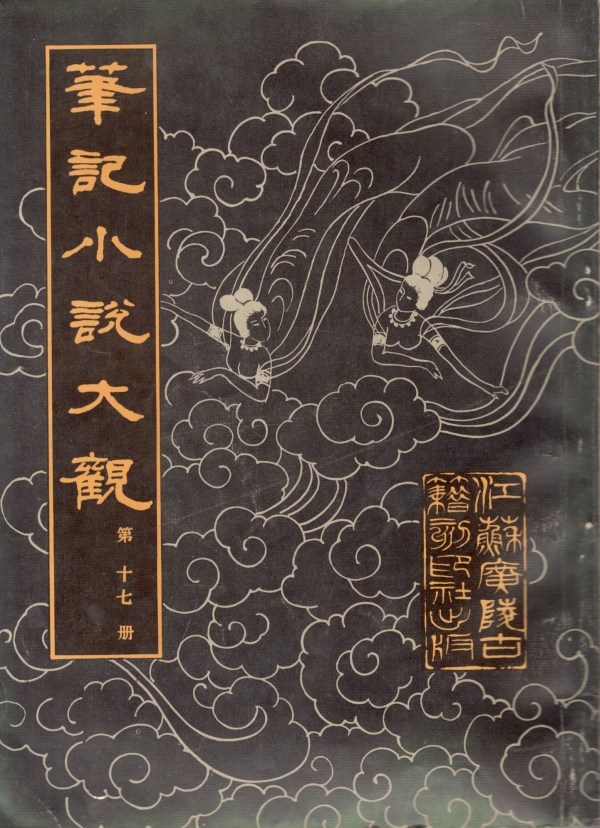 筆記小說大觀
第十七册
江蘇廣陵古
籍刻印社出版